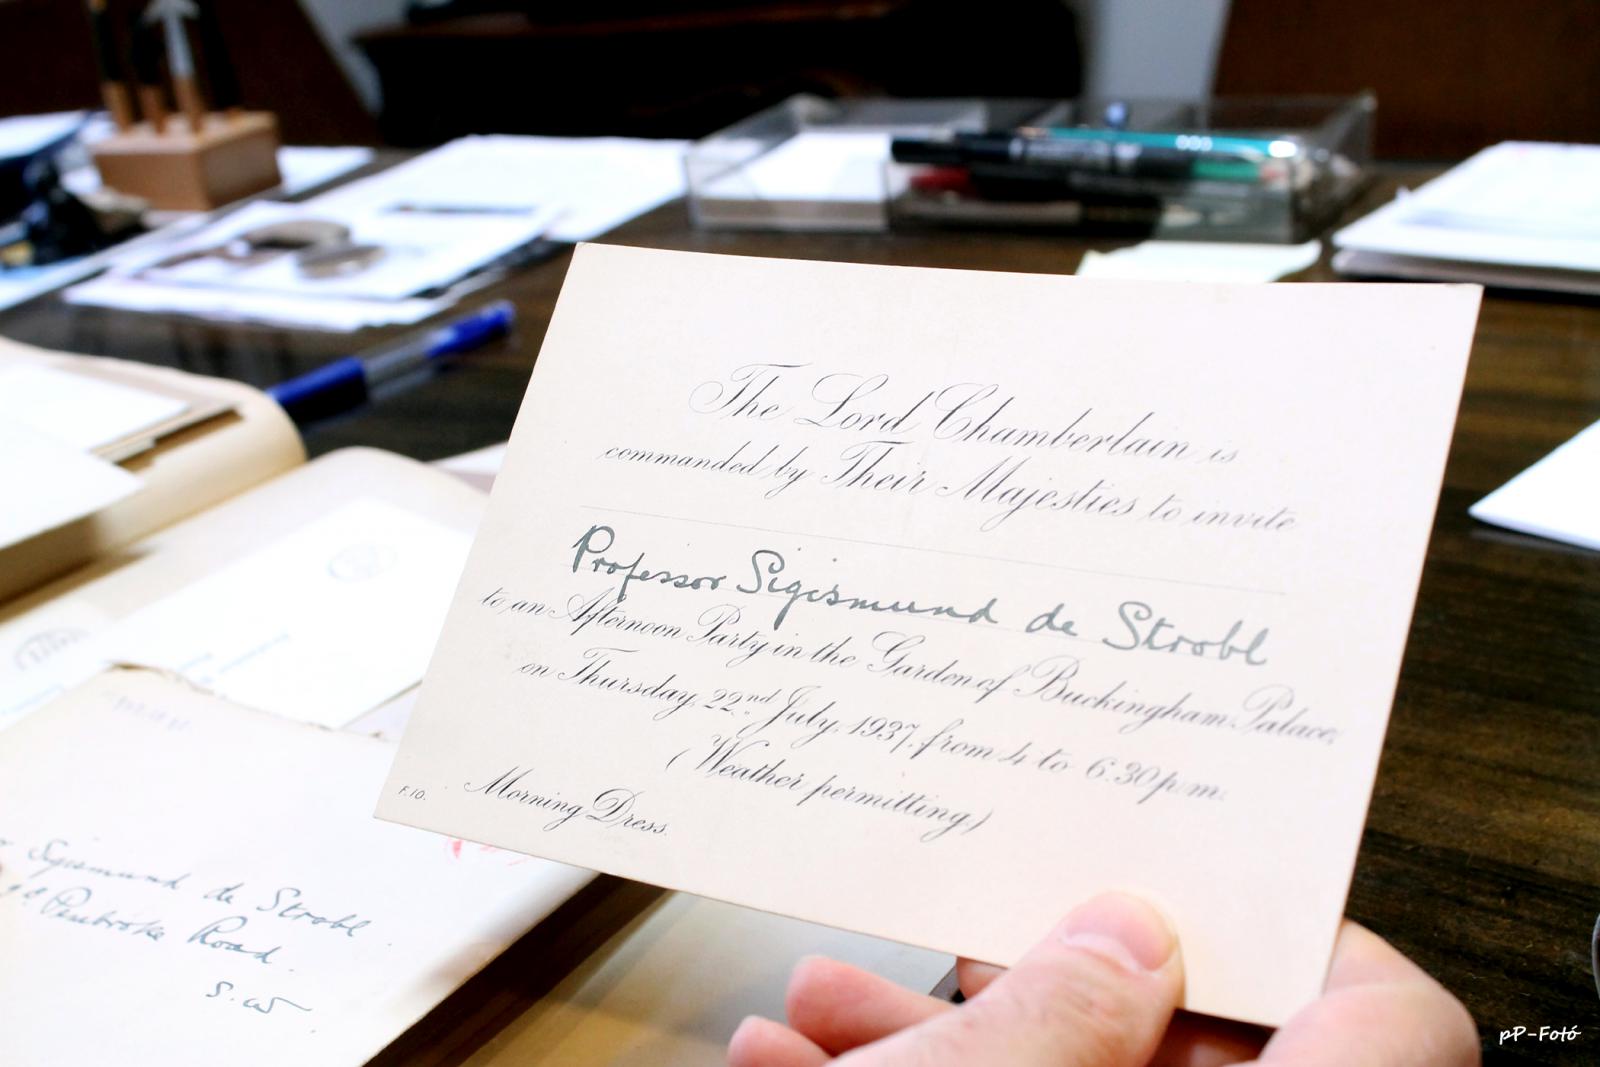 The Lord Chamberlain is
commanded by Their Majesties to invite
Professor Sigismund de Strobl
to an Afternoon Party in the Garden of Buckingham Palace,
on Thursday, 22nd July, 1937, from 4 to 6.30 p.m.
(Weather permitting)
F.10.
Morning Dress.
Sigismund de Strobl.
Pembroke Road.
S.W.
pP-Fotó